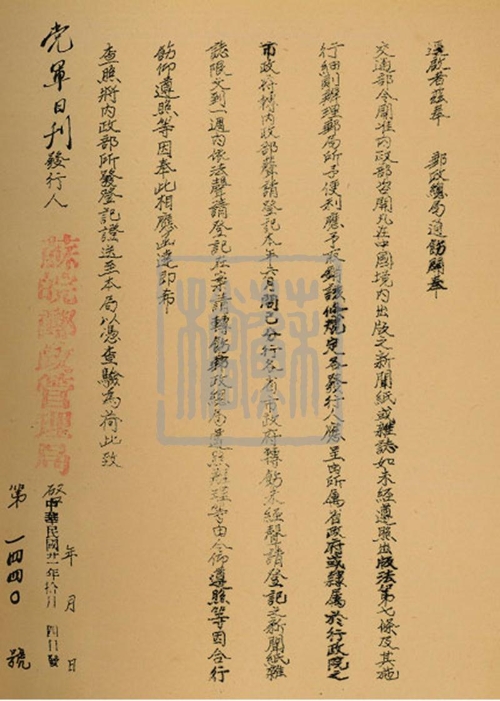 逕啟者茲奉 郵政總局通飭開奉
交通部令開准內政部咨開凡在中國境內出版之新聞紙或雜誌如未經遵照出版法第七條及其施
行細則辦理郵局所予便利應予取銷該條規定各發行人應呈由所屬省政府或隸屬於行政院之
市政府轉內政部聲請登記本年六月間已分行各省市政府轉飭未經聲請登記之新聞紙雜
誌限文到一週內依法聲請登記在案請轉飭郵政總局遵照辦理等由令仰遵照等因合行
飭仰遵照等因奉此相應函達即希
查照將內政部所發登記證送至本局以憑查驗為荷此致
党軍日刊發行人
蘇皖郵政管理局
中華民國廿一年拾月四日發
年 月 日
第一四四〇號